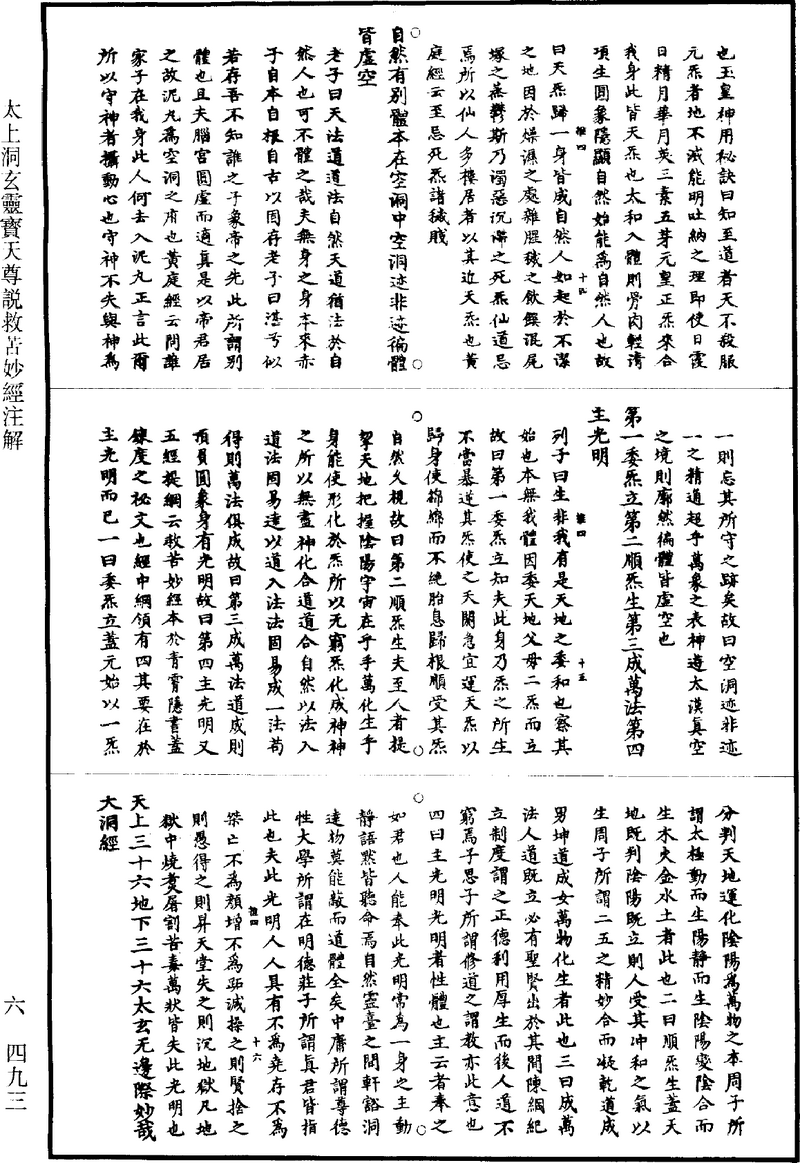 太上洞玄靈寶天尊說救苦妙經注解
六 四九三
也玉皇神用秘訣曰知至道者天不殺服
元炁者地不滅能明吐納之理即使日霞
日精月華月英三素五芽元皇正炁來合
我身此皆天炁也太和入體則骨肉輕清
項生圓象隱顯自然始能為自然人也故
推四 十四
曰天炁歸一身皆成自然人如起於不潔
之地因於燥濕之處雜腥穢之飲饌混屍
塚之蒸欝斯乃濁惡沉滯之死炁仙道忌
焉所以仙人多樓居者以其近天炁也黃
庭經云至忌死炁諸穢賤
自然有別體本在空洞中空洞迹非迹徧體
皆虛空
老子曰天法道道法自然天道猶法於自
然人也可不體之哉夫無身之身本來赤
子自本自根自古以固存老子曰湛兮似
若存吾不知誰之子象帝之先此所謂別
體也且夫腦宮圓虛而適真是以帝君居
之故泥丸為空洞之府也黃庭經云問誰
家子在我身此人何去入泥丸正言此爾
所以守神者攝動心也守神不失與神為
一則忘其所守之跡矣故曰空洞迹非迹
一之精道超乎萬象之表神遊太漠真空
之境則廓然徧體皆虛空也
第一委炁立第二順炁生第三成萬法第四
主光明
推四 十五
列子曰生非我有是天地之委和也察其
始也本無我體因委天地父母二炁而立
故曰第一委炁立知夫此身乃炁之所生
不當暴逆其炁使之夭閼急宜運天炁以
歸身使綿綿而不絕胎息歸根順受其炁
自然久視故曰第二順炁生夫至人者提
挈天地把握陰陽宇宙在乎手萬化生乎
身能使形化於炁所以无窮炁化成神神
之所以無盡神化合道道合自然以法入
道法固易達以道入法法固易成一法苟
得則萬法俱成故曰第三成萬法道成則
項負圓象身有光明故曰第四主光明又
五經提綱云救苦妙經本於青霄隱書蓋
鍊度之祕文也經中綱領有四其要在於
主光明而已一曰委炁立蓋元始以一炁
分判天地運化陰陽為萬物之本周子所
謂太極動而生陽靜而生陰陽變陰合而
生木火金水土者此也二曰順炁生蓋天
地既判陰陽既立則人受其冲和之氣以
生周子所謂二五之精妙合而凝乾道成
男坤道成女萬物化生者此也三曰成萬
法人道既立必有聖賢出於其間陳綱紀
立制度謂之正德利用厚生而後人道不
窮焉子思子所謂修道之謂教亦此意也
四曰主光明光明者性體也主云者奉之
如君也人能奉此光明常為一身之主動
靜語默皆聽命焉自然靈臺之間軒豁洞
達物莫能蔽而道體全矣中庸所謂尊德
性大學所謂在明德莊子所謂真君皆指
此也夫此光明人人具有不為堯存不為
推四 十六
桀亡不為顏增不為跖減操之則賢捨之
則愚得之則昇天堂失之則沉地獄凡地
獄中燒煑屠割苦毒萬狀皆失此光明也
天上三十六地下三十六太玄无邊際妙哉
大洞經